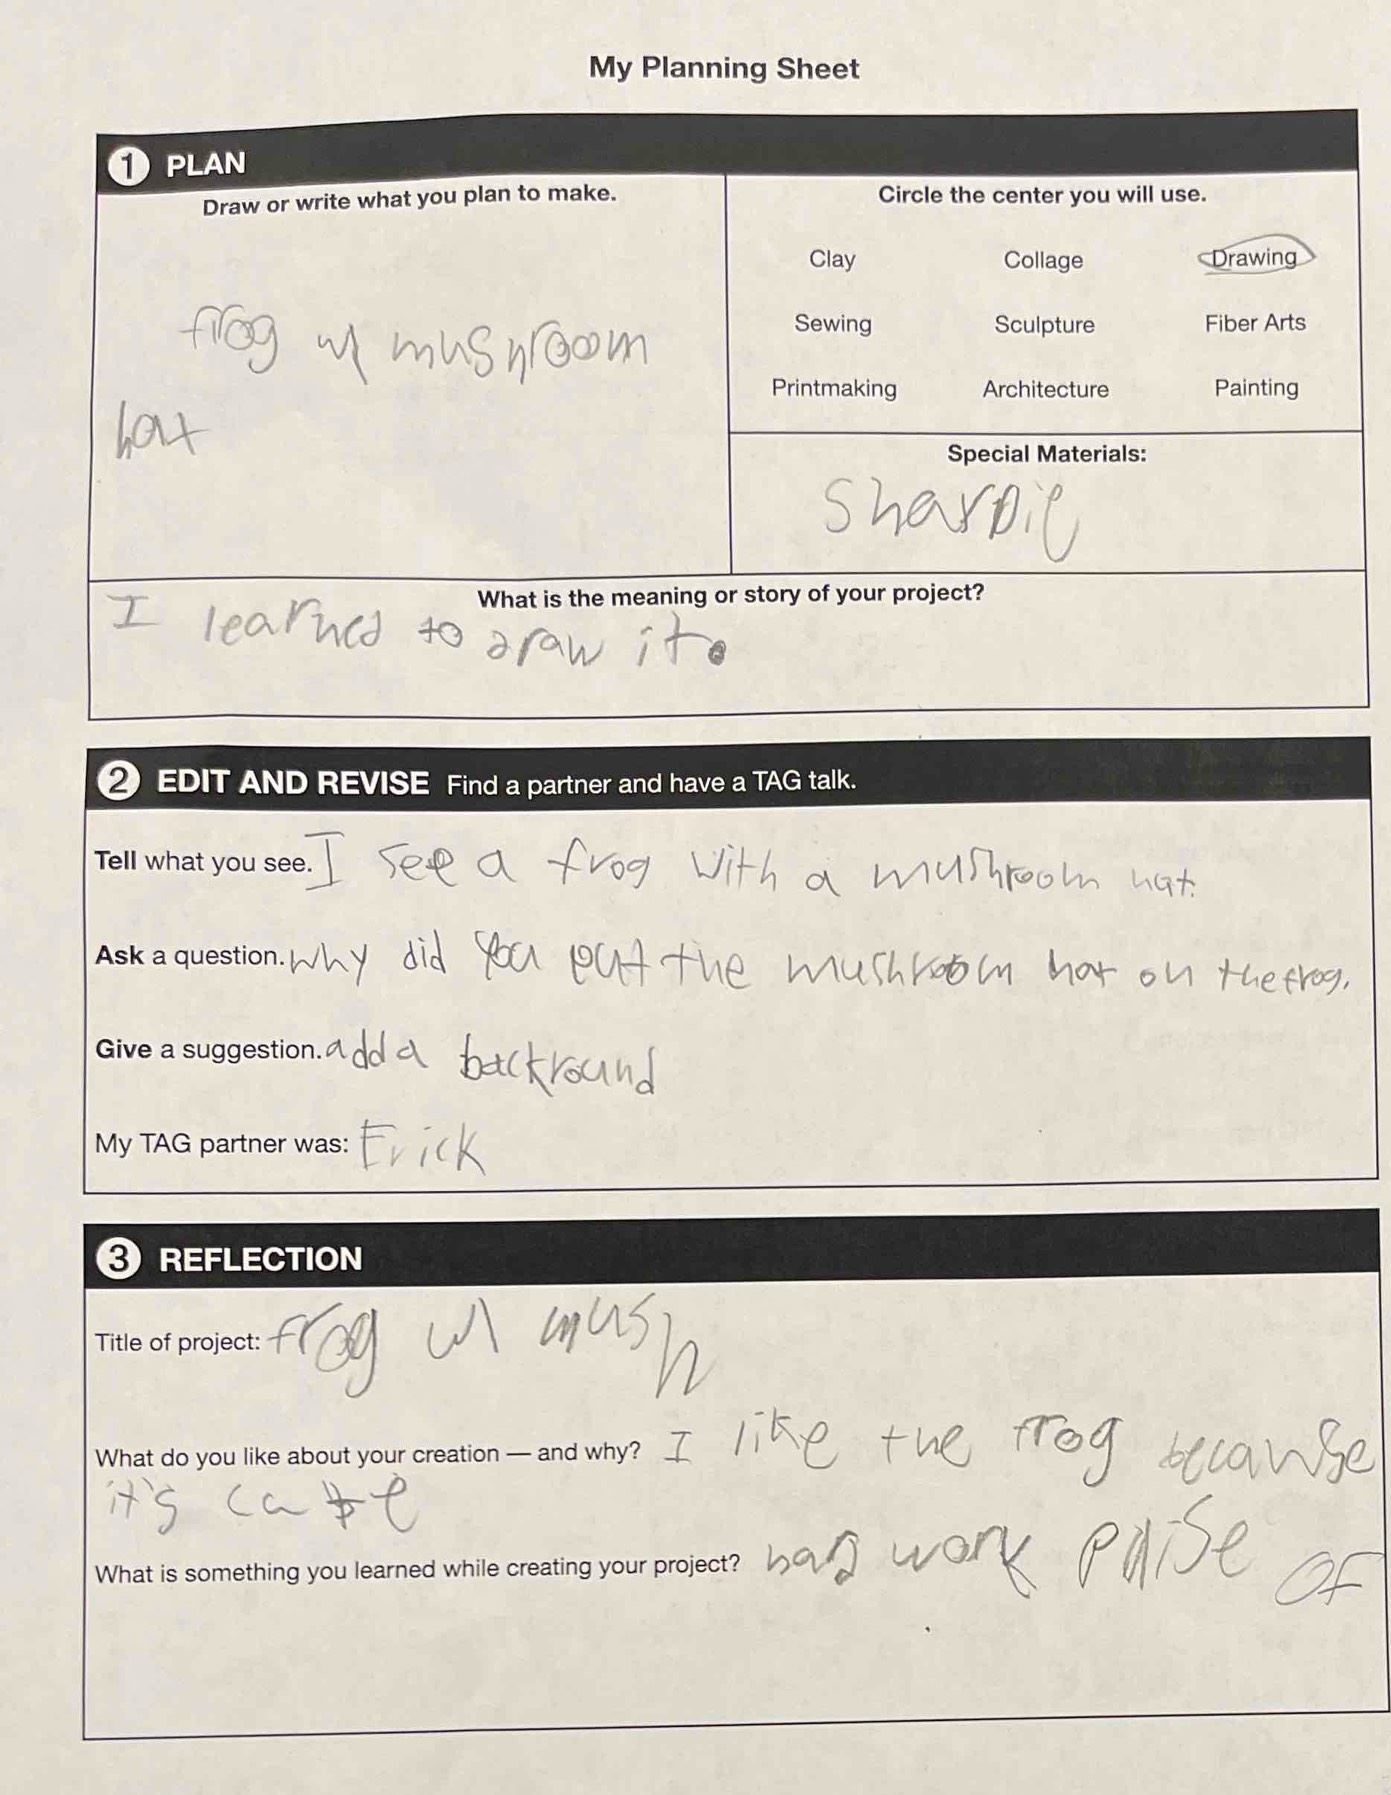 My Planning Sheet
1 PLAN
Draw or write what you plan to make.
frog w/ mushroom
hat
Circle the center you will use.
Clay Collage Drawing
Sewing Sculpture Fiber Arts
Printmaking Architecture Painting
Special Materials:
Sharpie
What is the meaning or story of your project?
I learned to draw it.
2 EDIT AND REVISE Find a partner and have a TAG talk.
Tell what you see. I see a frog with a mushroom hat.
Ask a question. Why did you put the mushroom hat on the frog.
Give a suggestion. add a backround
My TAG partner was: Erick
3 REFLECTION
Title of project: frog w/ mush
What do you like about your creation — and why? I like the frog becawse
it's cute
What is something you learned while creating your project? hard work paise of